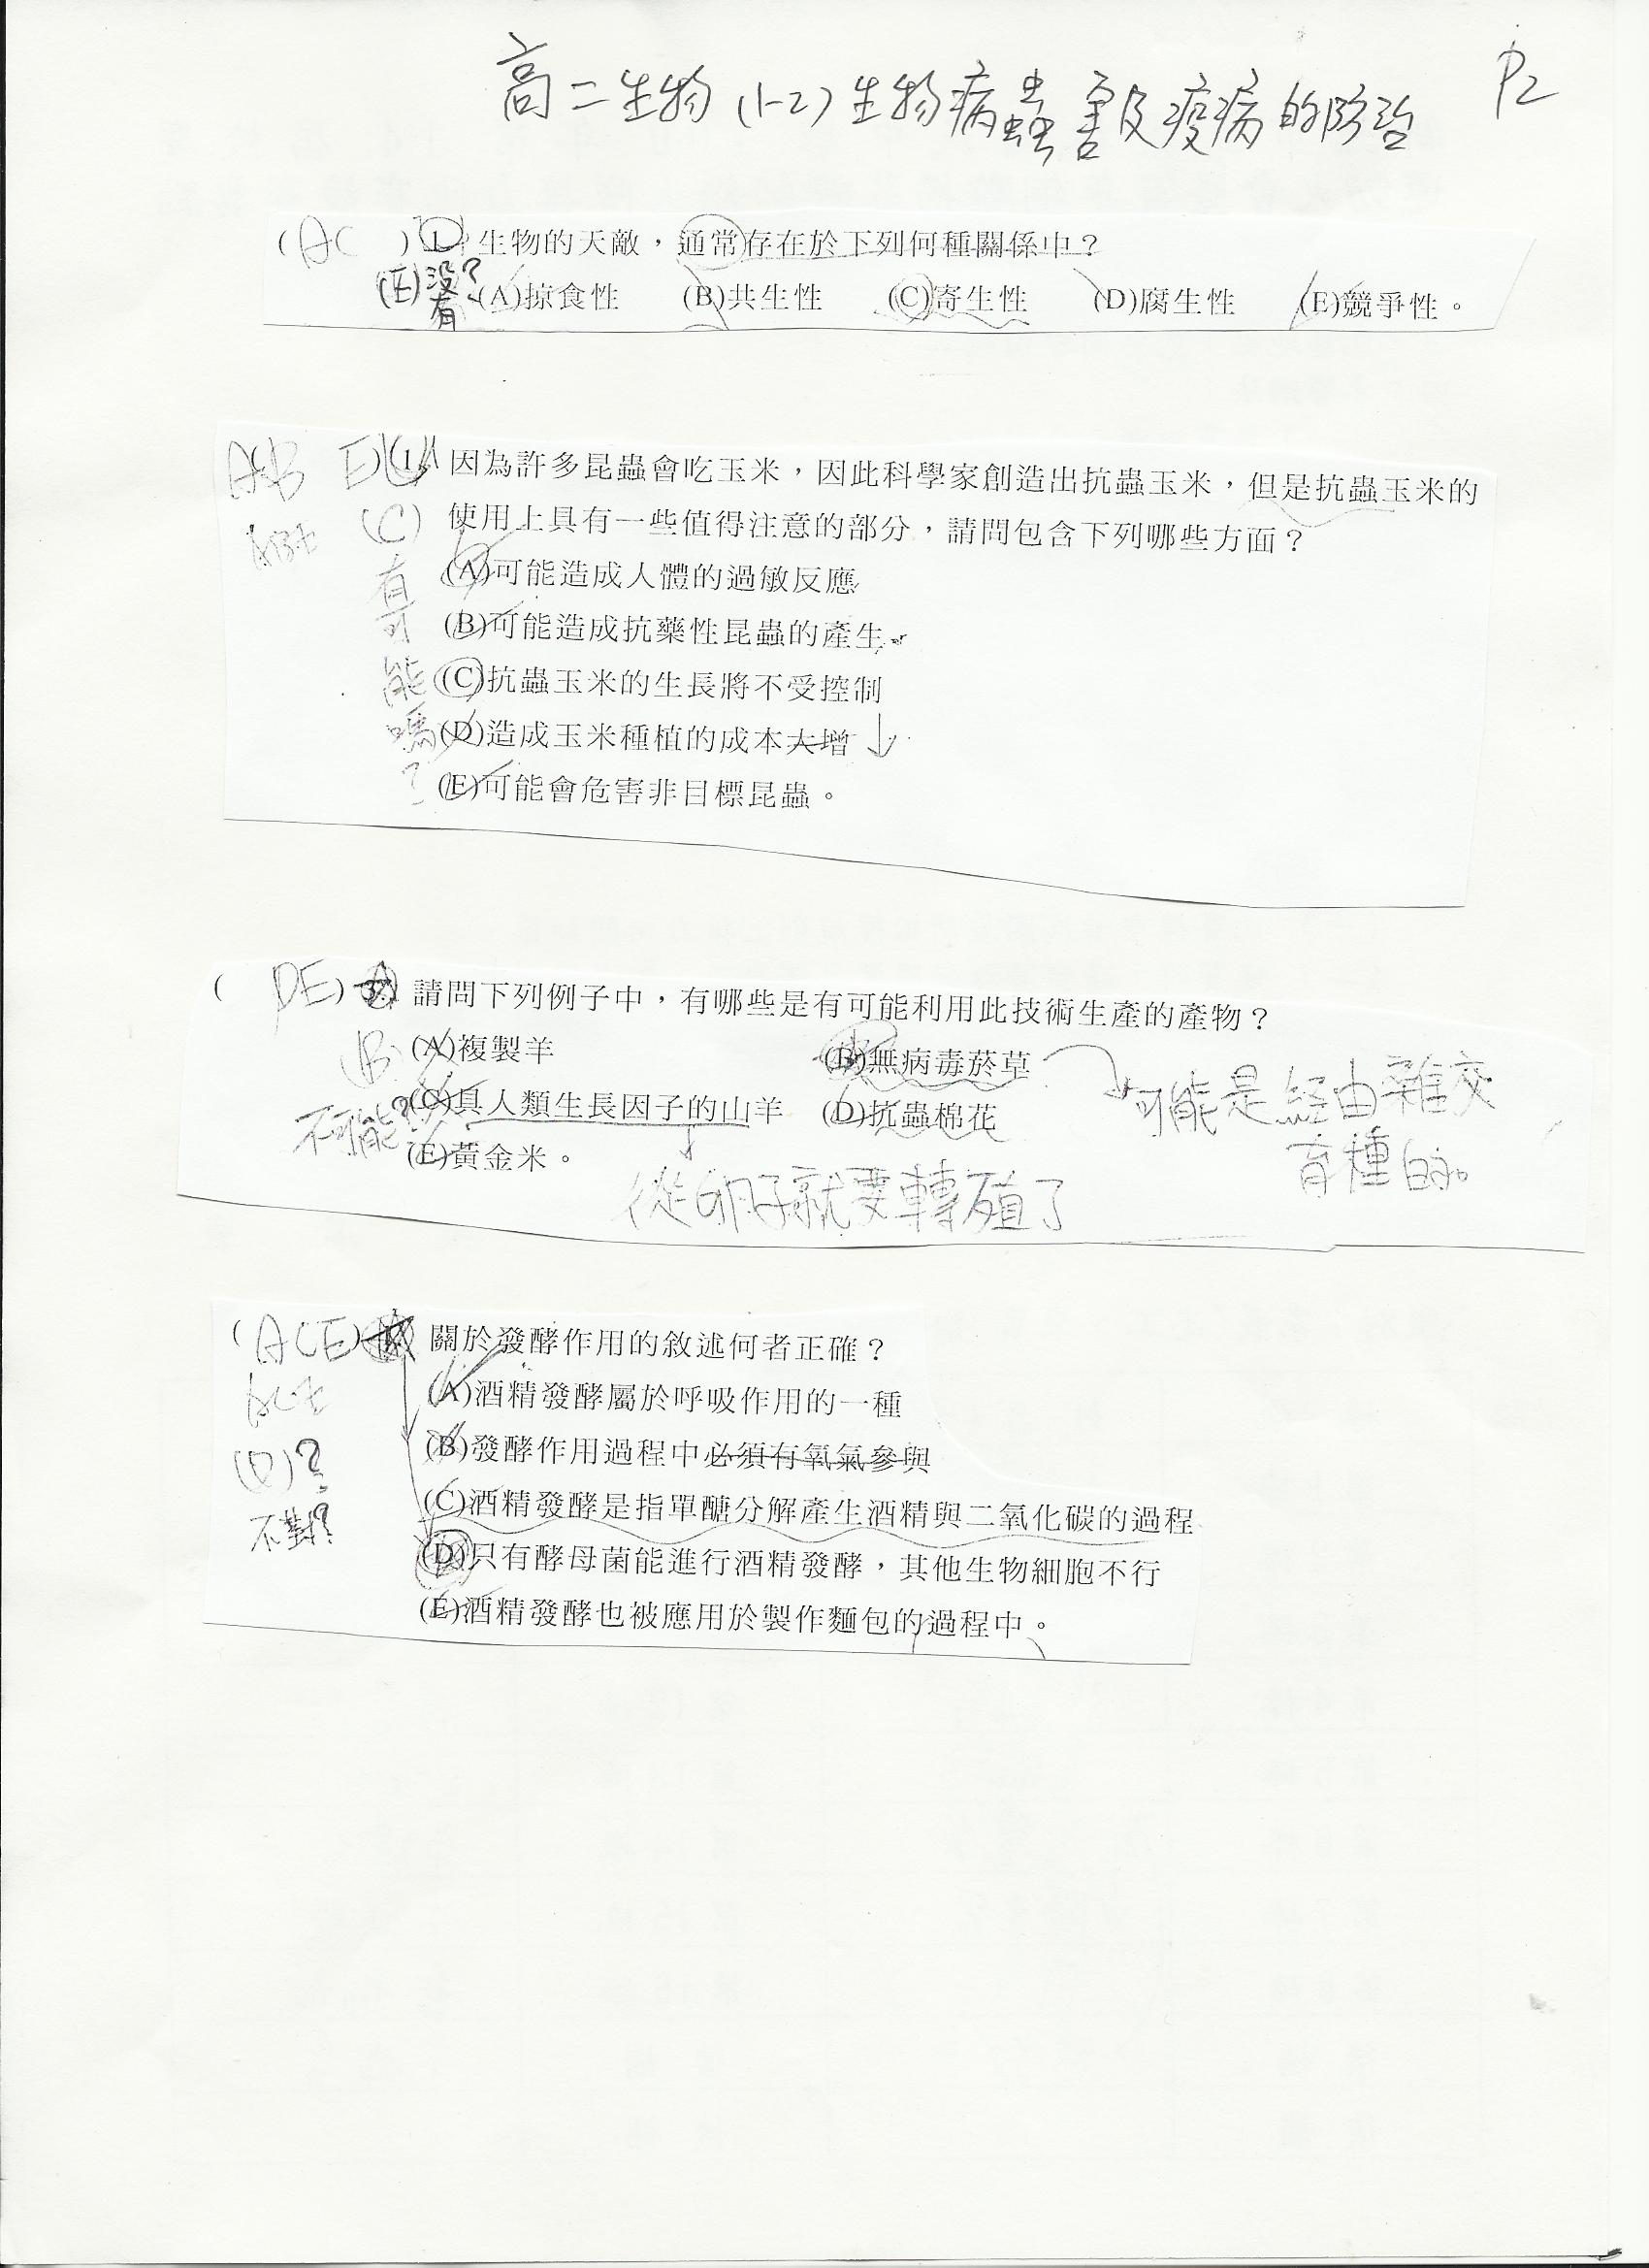 高二生物(1-2)生物病蟲害及疫病的防治
P2
(AC)1. 生物的天敵，通常存在於下列何種關係中？
(E)沒有？
(A)掠食性 (B)共生性 (C)寄生性 (D)腐生性 (E)競爭性。
AB E)1. 因為許多昆蟲會吃玉米，因此科學家創造出抗蟲玉米，但是抗蟲玉米的
使用上具有一些值得注意的部分，請問包含下列哪些方面？
ABE
(C)有可能嗎？
(A)可能造成人體的過敏反應
(B)可能造成抗藥性昆蟲的產生
(C)抗蟲玉米的生長將不受控制
(D)造成玉米種植的成本大增↓
(E)可能會危害非目標昆蟲。
( DE) 請問下列例子中，有哪些是有可能利用此技術生產的產物？
(B)不可能？
(A)複製羊 (B)無病毒菸草
(C)具人類生長因子的山羊 (D)抗蟲棉花
(E)黃金米。
可能是經由雜交
育種的。
從卵子就要轉殖了
(ACE) 關於發酵作用的敘述何者正確？
ACE
(D)？
不對？
(A)酒精發酵屬於呼吸作用的一種
(B)發酵作用過程中必須有氧氣參與
(C)酒精發酵是指單醣分解產生酒精與二氧化碳的過程
(D)只有酵母菌能進行酒精發酵，其他生物細胞不行
(E)酒精發酵也被應用於製作麵包的過程中。